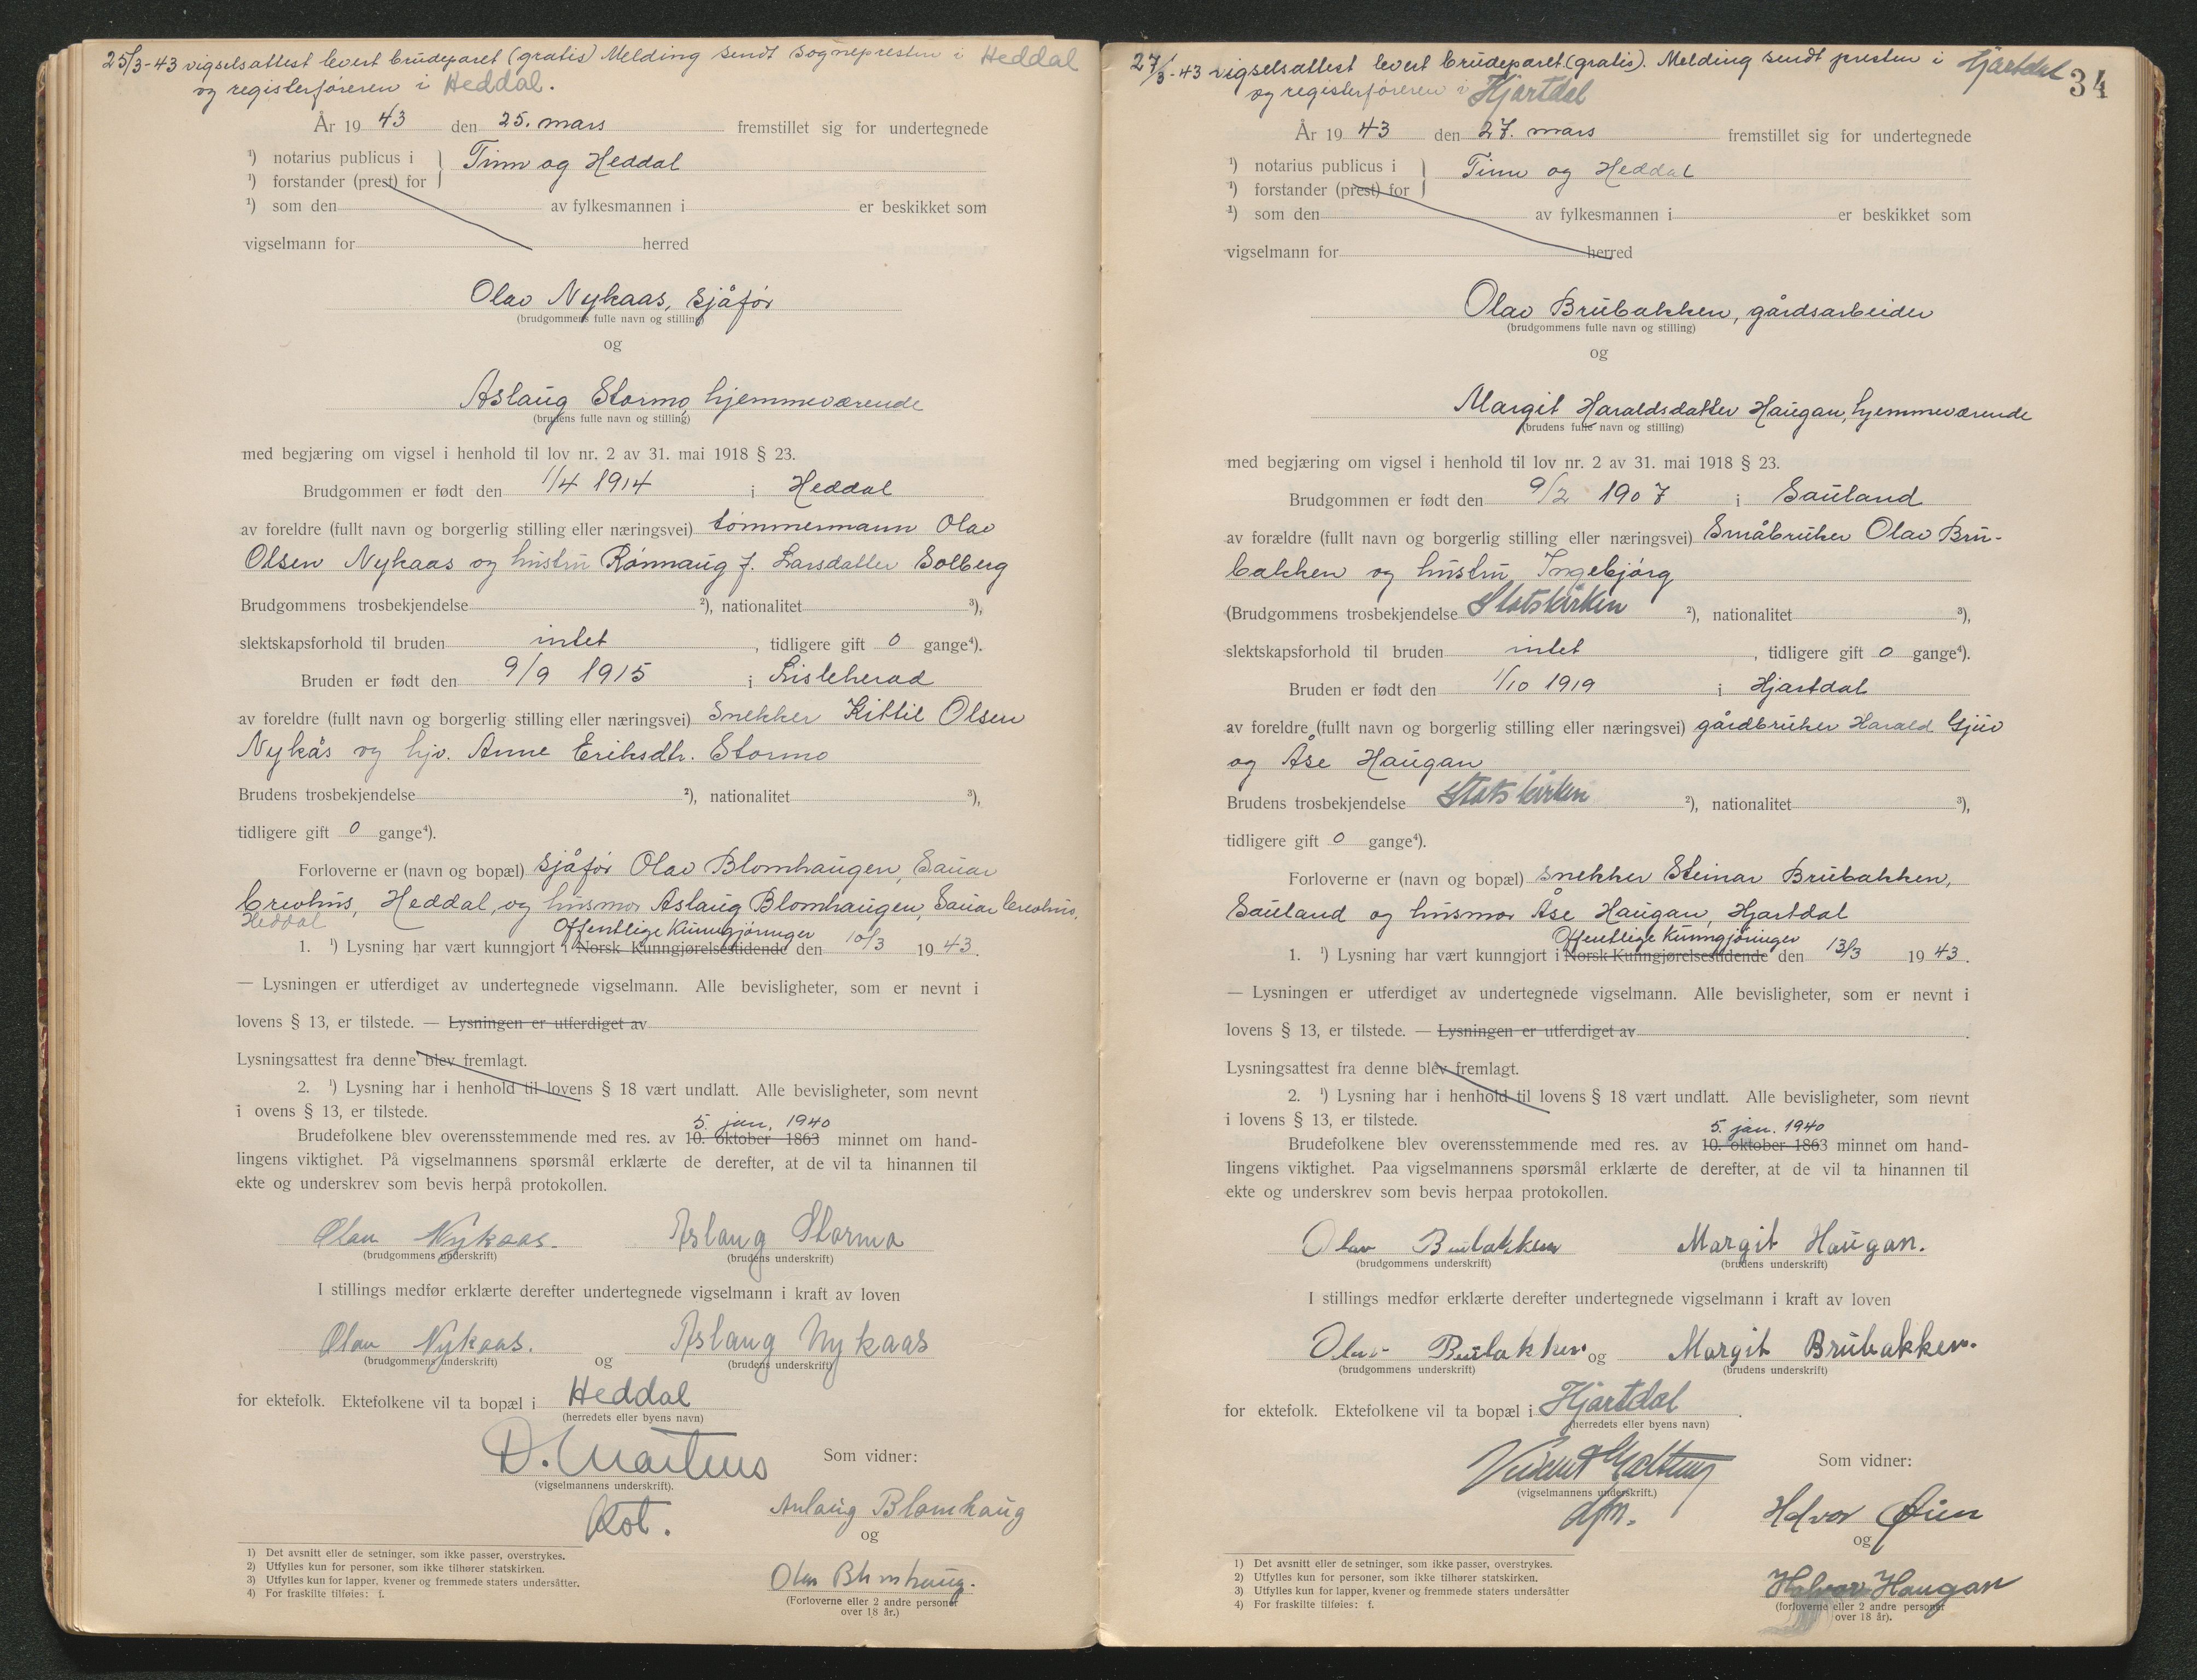 25/3-43 vigselsattest levert brudeparet (gratis) Melding sendt sognepresten i Heddal
og registerføreren i Heddal.
År 1943 den 25. mars fremstillet sig for undertegnede
¹) notarius publicus i } Tinn og Heddal
¹) forstander (prest) for
¹) som den av fylkesmannen i er beskikket som
vigselmann for herred
Olav Nykaas, sjåfør
(brudgommens fulle navn og stilling)
og
Aslaug Stormo, hjemmeværende
(brudens fulle navn og stilling)
med begjæring om vigsel i henhold til lov nr. 2 av 31. mai 1918 § 23.
Brudgommen er født den 1/4 1914 i Heddal
av foreldre (fullt navn og borgerlig stilling eller næringsvei) tømmermann Olav
Olsen Nykaas og hustru Rønnaug f. Larsdatter Solberg
Brudgommens trosbekjendelse ²), nationalitet ³),
slektskapsforhold til bruden intet, tidligere gift 0 gange⁴).
Bruden er født den 9/9 1915 i Lisleherad
av foreldre (fullt navn og borgerlig stilling eller næringsvei) snekker Kittil Olsen
Nykås og hjv. Anne Eriksdtr. Stormo
Brudens trosbekjendelse ²), nationalitet ³),
tidligere gift 0 gange⁴).
Forloverne er (navn og bopæl) sjåfør Olav Blomhaugen, Sauar
brevhus, Heddal, og husmor Aslaug Blomhaugen, Sauar brevhus,
Heddal
Offentlige Kunngjøringer
1. ¹) Lysning har vært kunngjort i Norsk Kunngjørelsestidende den 10/3 1943.
— Lysningen er utferdiget av undertegnede vigselmann. Alle bevisligheter, som er nevnt i
lovens § 13, er tilstede. — Lysningen er utferdiget av
Lysningsattest fra denne blev fremlagt.
2. ¹) Lysning har i henhold til lovens § 18 vært undlatt. Alle bevisligheter, som nevnt
i ovens § 13, er tilstede.
5. jan. 1940
Brudefolkene blev overensstemmende med res. av 10. oktober 1863 minnet om hand-
lingens viktighet. På vigselmannens spørsmål erklærte de derefter, at de vil ta hinannen til
ekte og underskrev som bevis herpå protokollen.
Olav Nykaas. Aslaug Stormo
(brudgommens underskrift) (brudens underskrift)
I stillings medfør erklærte derefter undertegnede vigselmann i kraft av loven
Olav Nykaas. og Aslaug Nykaas
(brudgommens underskrift) (brudens underskrift)
for ektefolk. Ektefolkene vil ta bopæl i Heddal
(herredets eller byens navn)
D. Martens Som vidner:
(vigselmannens underskrift).
Kst. Aslaug Blomhaug
og
Olav Blomhaug.
(Forloverne eller 2 andre personer
over 18 år.)
1) Det avsnitt eller de setninger, som ikke passer, overstrykes.
2) Utfylles kun for personer, som ikke tilhører statskirken.
3) Utfylles kun for lapper, kvener og fremmede staters undersåtter.
4) For fraskilte tilføies: f.
27/3-43 vigselsattest levert brudeparet (gratis). Melding sendt presten i Hjartdal
34
og registerføreren i Hjartdal
År 1943 den 27. mars fremstillet sig for undertegnede
¹) notarius publicus i } Tinn og Heddal
¹) forstander (prest) for
¹) som den av fylkesmannen i er beskikket som
vigselmann for herred
Olav Brubakken, gårdsarbeider
(brudgommens fulle navn og stilling)
og
Margit Haraldsdatter Haugan, hjemmeværende
(brudens fulle navn og stilling)
med begjæring om vigsel i henhold til lov nr. 2 av 31. mai 1918 § 23.
Brudgommen er født den 9/2 1907 i Sauland
av forældre (fullt navn og borgerlig stilling eller næringsvei) Småbruker Olav Bru-
bakken og hustru Ingebjørg
(Brudgommens trosbekjendelse Statskirken ²), nationalitet ³),
slektskapsforhold til bruden intet, tidligere gift 0 gange⁴).
Bruden er født den 1/10 1919 i Hjartdal
av foreldre (fullt navn og borgerlig stilling eller næringsvei) gårdbruker Harald Gjuv
og Åse Haugan
Brudens trosbekjendelse Statskirken ²), nationalitet ³),
tidligere gift 0 gange⁴).
Forloverne er (navn og bopæl) snekker Steinar Brubakken,
Sauland og husmor Åse Haugan, Hjartdal
Offentlige Kunngjøringer
1. ¹) Lysning har vært kunngjort i Norsk Kunngjørelsestidende den 13/3 1943.
— Lysningen er utferdiget av undertegnede vigselmann. Alle bevisligheter, som er nevnt i
lovens § 13, er tilstede. — Lysningen er utferdiget av
Lysningsattest fra denne blev fremlagt.
2. ¹) Lysning har i henhold til lovens § 18 vært undlatt. Alle bevisligheter, som nevnt
i lovens § 13, er tilstede.
5. jan. 1940
Brudefolkene blev overensstemmende med res. av 10. oktober 1863 minnet om hand-
lingens viktighet. Paa vigselmannens spørsmål erklærte de derefter, at de vil ta hinannen til
ekte og underskrev som bevis herpaa protokollen.
Olav Brubakken Margit Haugan.
(brudgommens underskrift) (brudens underskrift)
I stillings medfør erklærte derefter undertegnede vigselmann i kraft av loven
Olav Brubakken og Margit Brubakken.
(brudgommens underskrift) (brudens underskrift)
for ektefolk. Ektefolkene vil ta bopæl i Hjartdal.
(herredets eller byens navn)
Som vidner:
(vigselmannens underskrift.)
dfm. Halvor Øien
og
Halvor Haugan
(forloverne eller 2 andre personer
over 18 år).
1) Det avsnitt eller de setninger, som ikke passer, overstrykes.
2) Utfylles kun for personer, som ikke tilhører statskirken.
3) Utfylles kun for lapper, kvener og fremmede staters undersåtter
4) For fraskilte tilføies: f.